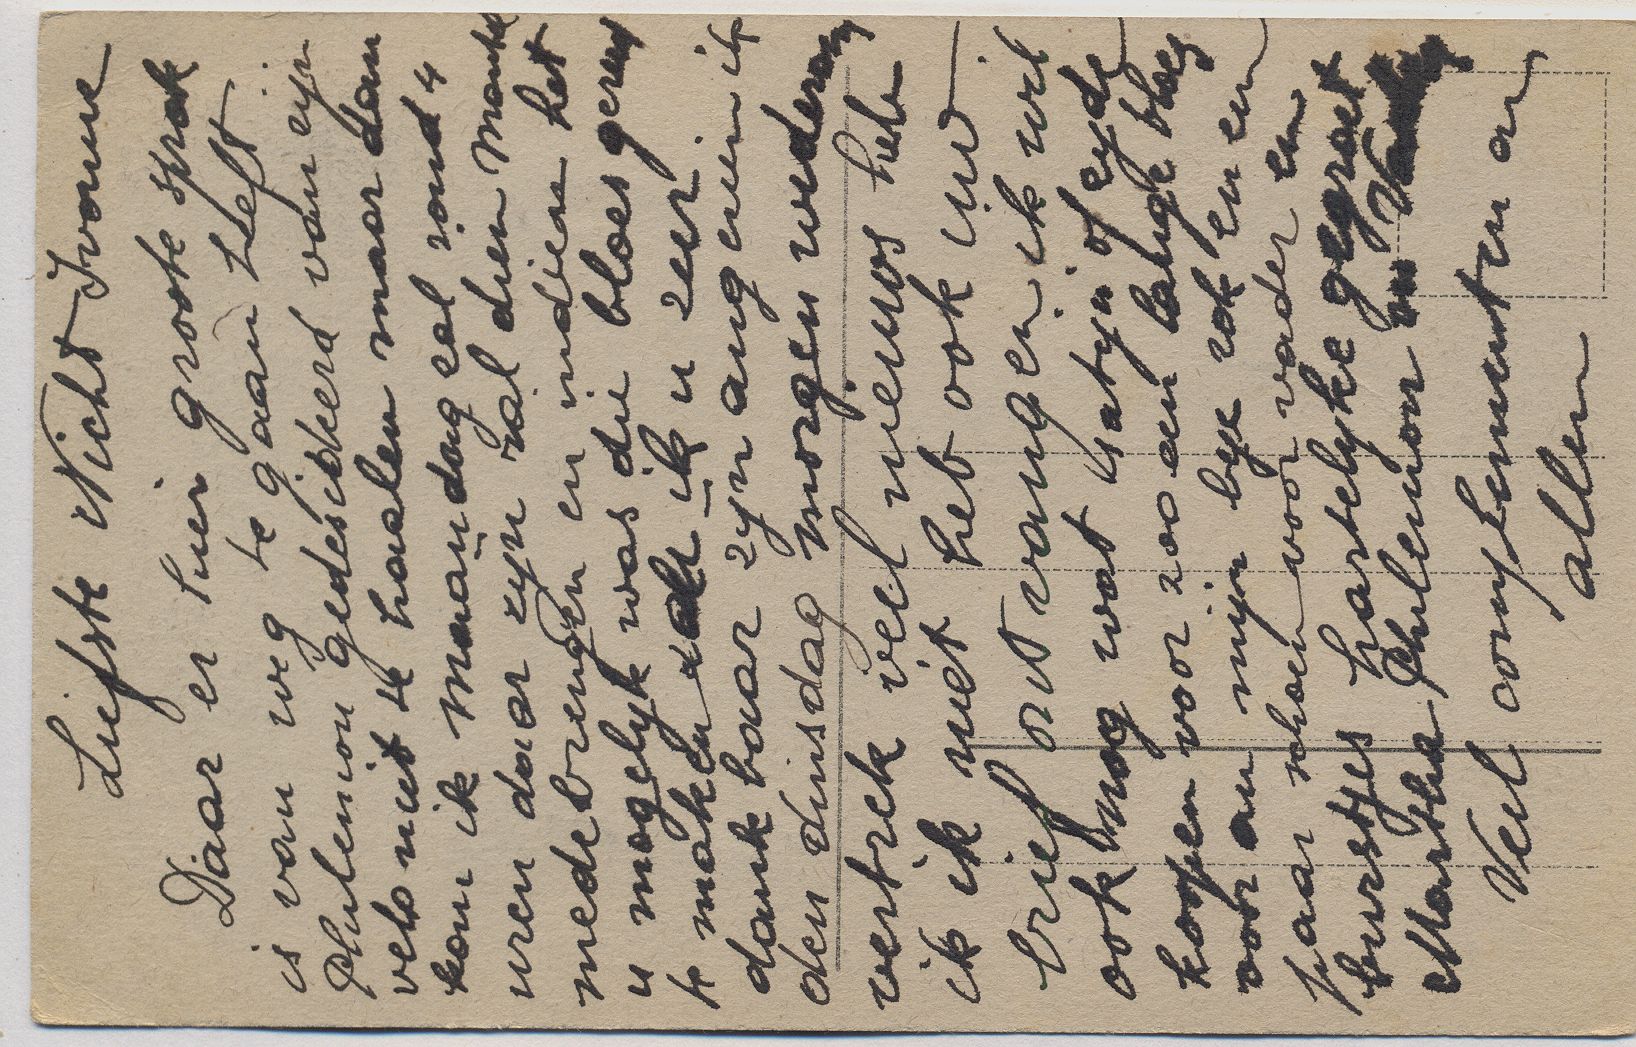 Liefste Nicht Ivonne
Daar er hier groote sprak
is van weg te gaan heft
Philemon gedesideerd van zijn
velo niet te haalen maar dan
kom ik maandag eal rond 4
uren daar zyn zal dien mantel
medebrengen en indien het
u mogelyk was die bloes gereed
te maken zal ik u zeer
dankbaar zyn angenien ik
den dinsdag morgen wederom
vertrek veel nieuws heb
ik ik niet heb ook uw
brief ontvangen. ik wil
ook nog wat satyn of zyde
koopen voor zoo een lange bloes
voor an mijn bye rok en een
paar schoen voor vader en
burstjes hartelyke gegroet
Martha Philemon en
Veel complementen an
allen